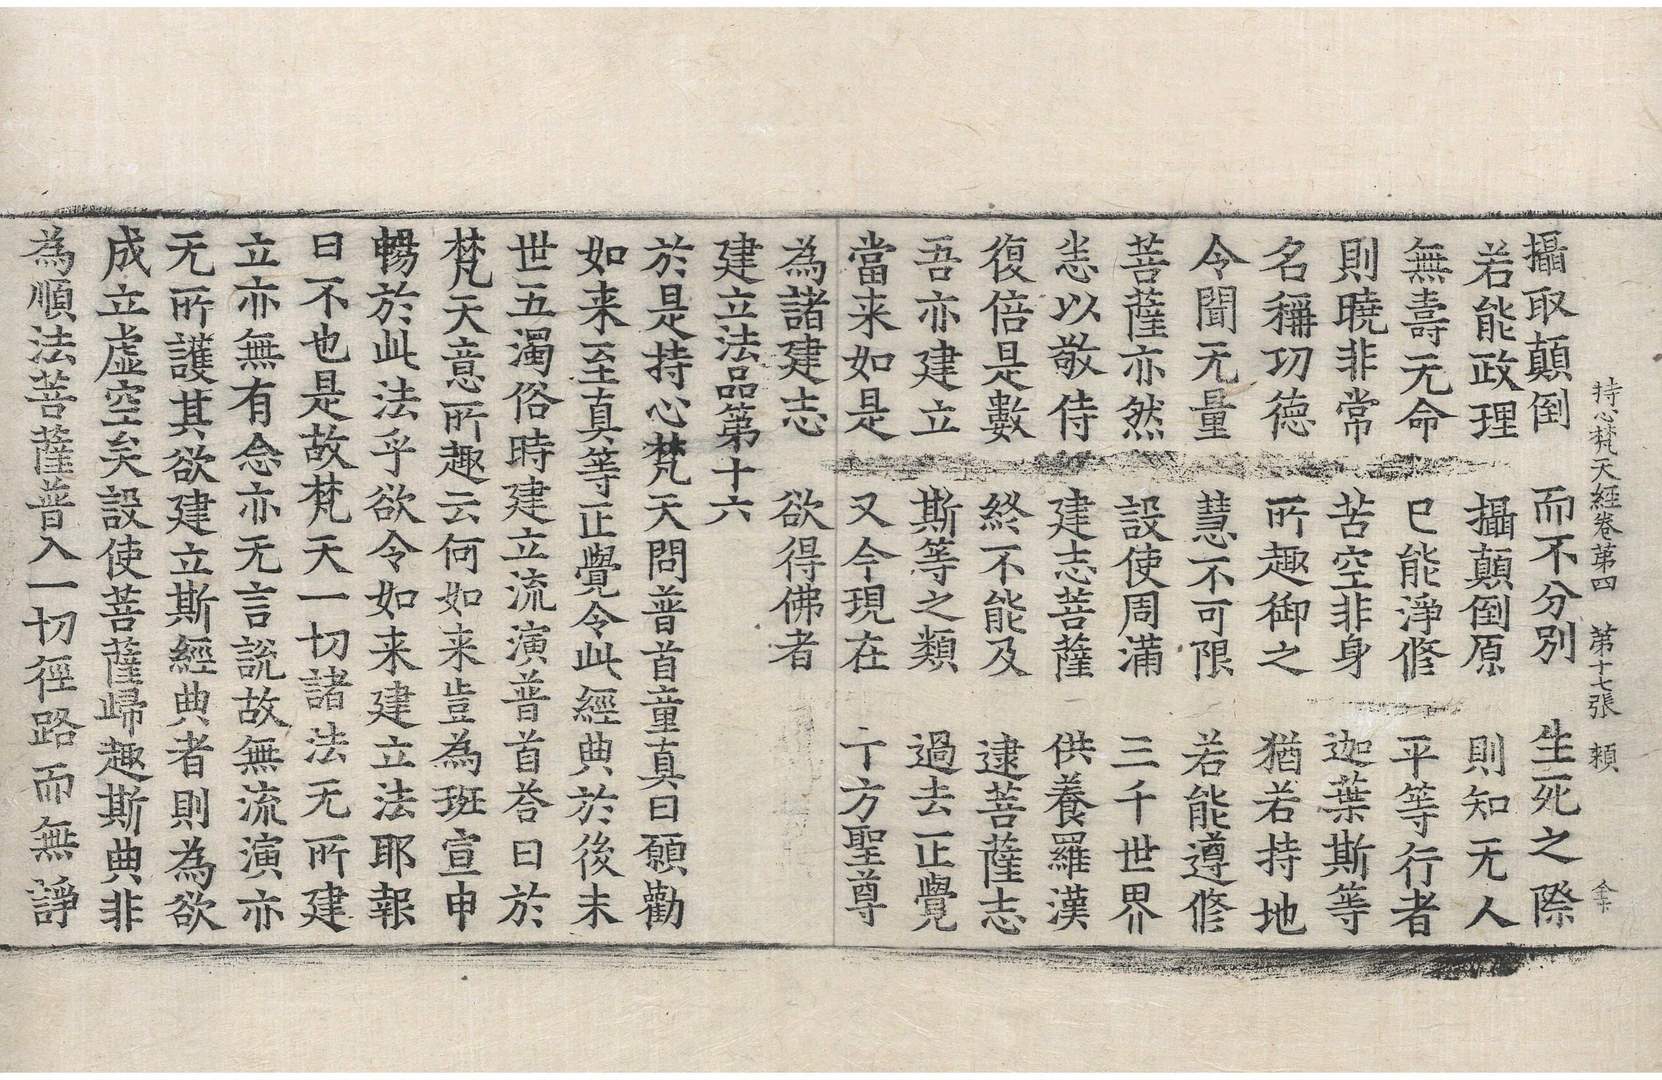 持心梵天經卷第四　第十七張　頼
攝取顛倒　而不分別　生死之際
若能政理　攝顛倒原　則知无人
無壽无命　已能淨修　平等行者
則曉非常　苦空非身　迦葉斯等
名稱功德　所趣御之　猶若持地
令聞无量　慧不可限　若能遵修
菩薩亦然　設使周滿　三千世界
恙以敬侍　建志菩薩　供養羅漢
復倍是數　終不能及　逮菩薩志
吾亦建立　斯等之類　過去正覺
當来如是　又今現在　十方聖尊
為諸建志　欲得佛者
建立法品第十六
於是持心梵天問普首童真曰願勸
如来至真等正覺令此經典於後末
世五濁俗時建立流演普首荅曰於
梵天意所趣云何如来豈為班宣申
暢於此法乎欲令如来建立法耶報
曰不也是故梵天一切諸法无所建
立亦無有念亦无言說故無流演亦
无所護其欲建立斯經典者則為欲
成立虛空矣設使菩薩歸趣斯典非
為順法菩薩普入一切徑路而無諍